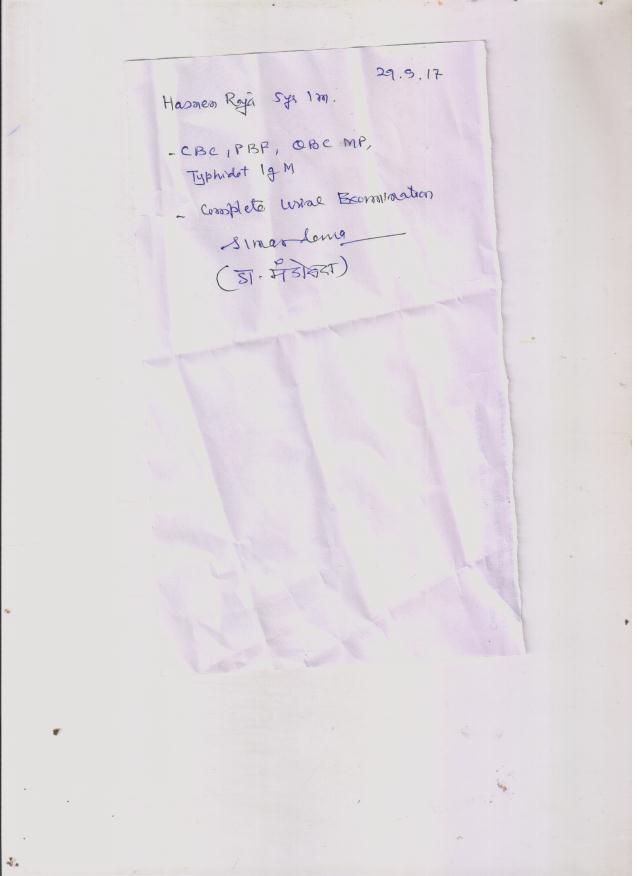 29.9.17
Hasnen Raja 5yr 1m.
- CBC, PBF, QBC MP,
Typhidot IgM
- Complete Urine Examination
(डा. )